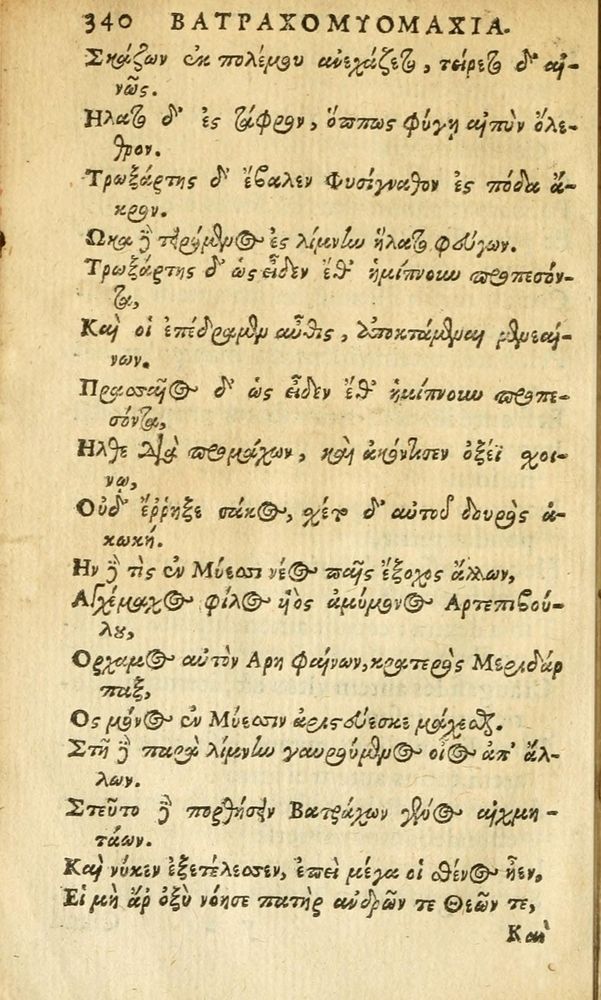 340 ΒΑΤΡΑΧΟΜΥΟΜΑΧΙΑ.
Σκάζων ἐκ πολέμου ἀνεχάζετο, τείρετο δ' αἰ-
νῶς.
Ηλατο δ' ἐς τάφρον, ὅππως φύγῃ αἰπὺν ὄλε-
θρον.
Τρωξάρτης δ' ἔβαλεν Φυσίγναθον ἐς πόδα ἄ-
κρον.
Ωκα ἢ τειρόμενος ἐς λίμνην ἥλατο φεύγων.
Τρωξάρτης δ' ὡς εἶδεν ἔθ' ἡμίπνοιω προπεσόν-
τα,
Καὶ οἱ ἐπέδραμεν αὖθις, ἀποκτάμεναι μενεαί-
νων.
Πρασσαῖος δ' ὡς εἶδεν ἔθ' ἡμίπνουν προπε-
σόντα,
Ηλθε διὰ προμάχων, καὶ ἀκόντισεν ὀξέϊ χοί-
νῳ,
Οὐδ' ἔῤῥηξε σάκος, χέτο δ' αὐτοῦ δουρὸς ἀ-
κωκή.
Ην δέ τὶς ἐν Μύεσσι νέος παῖς ἔξοχος ἄλλων,
Αγχέμαχος φίλος ἠὸς ἀμύμονος Αρτεπιβού-
λου,
Ορχαμος αὐτὸν Αρη φαίνων, κρατερὸς Μεριδάρ
παξ,
Ος μόνος ἐν Μύεσσιν ἀριστεύεσκε μάχεσθαι.
Στῆ δὲ παρὰ λίμνην γαυρούμενος οἶος ἀπ' ἄλ-
λων.
Στεῦτο δὲ πορθήσειν Βατράχων γένος αἰχμη-
τάων.
Καὶ νύκεν ἐξετέλεσσεν, ἐπεὶ μέγα οἱ σθένος ἦεν,
Εἰ μὴ ἄρ ὀξὺ νόησε πατὴρ ἀνδρῶν τε Θεῶν τε,
Καὶ